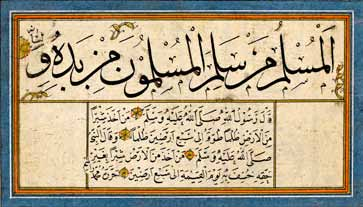 اَلْمُسْلِمُ مَنْ سَلِمَ الْمُسْلِمُونَ مِنْ يَدِهِ وَ لسانه
قَالَ رَسُولُ اللهِ صَلَّى اللهُ عَلَيْهِ وَسَلَّمَ مَنْ اَخَذَ شِبْرًا
مِنَ الْاَرْضِ ظُلْمًا طُوِّقَهُ اِلَى سَبْعِ اَرَضِينَ ظُلْمًا وَقَالَ النَّبِيُّ
صَلَّى اللهُ عَلَيْهِ وَسَلَّمَ مَنْ اَخَذَ مِنَ الْاَرْضِ شِبْرًا بِغَيْرِ
حَقِّهِ خُسِفَ بِهِ يَوْمَ الْقِيٰمَةِ اِلَى سَبْعِ اَرَضِينَ